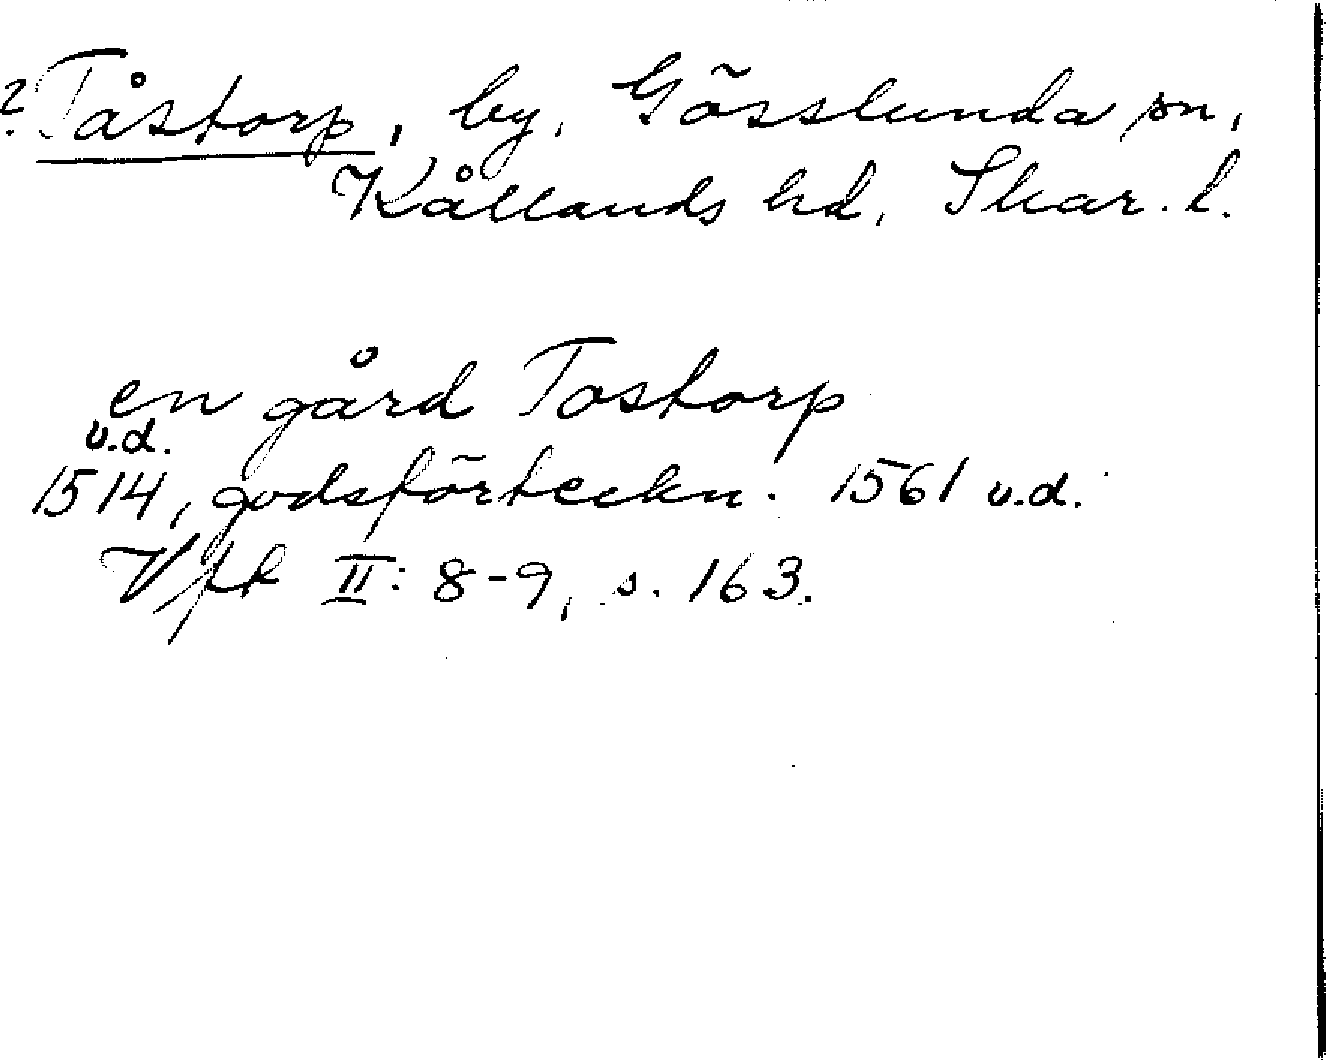 ? Tåstorp, by, Gösslunda sn,
Kållands hd, Skar. l.
en gård Tostorp
u.d.
1514, godsförteckn. 1561 u.d.
Vfk II: 8-9, s. 163.